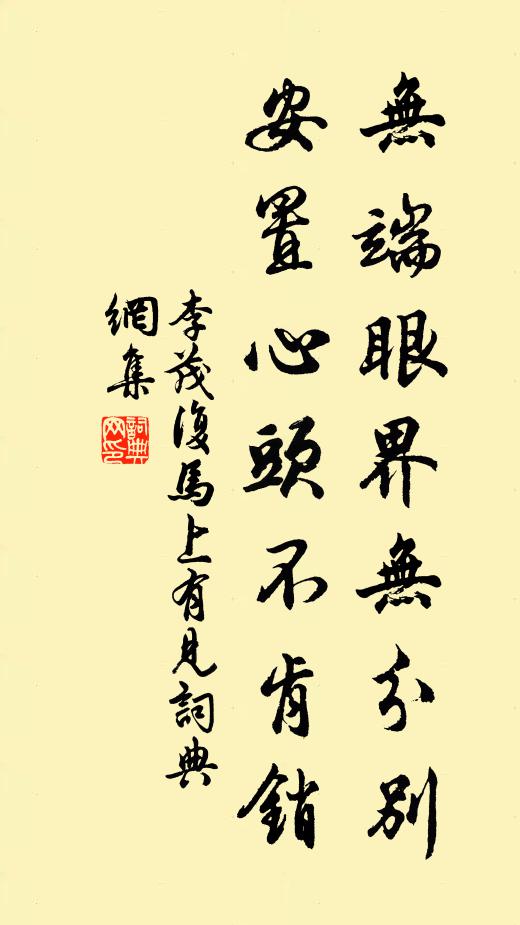 無端眼界無分別
安置心頭不肯銷
李茂復馬上有見詞典
網集
詞典
网印